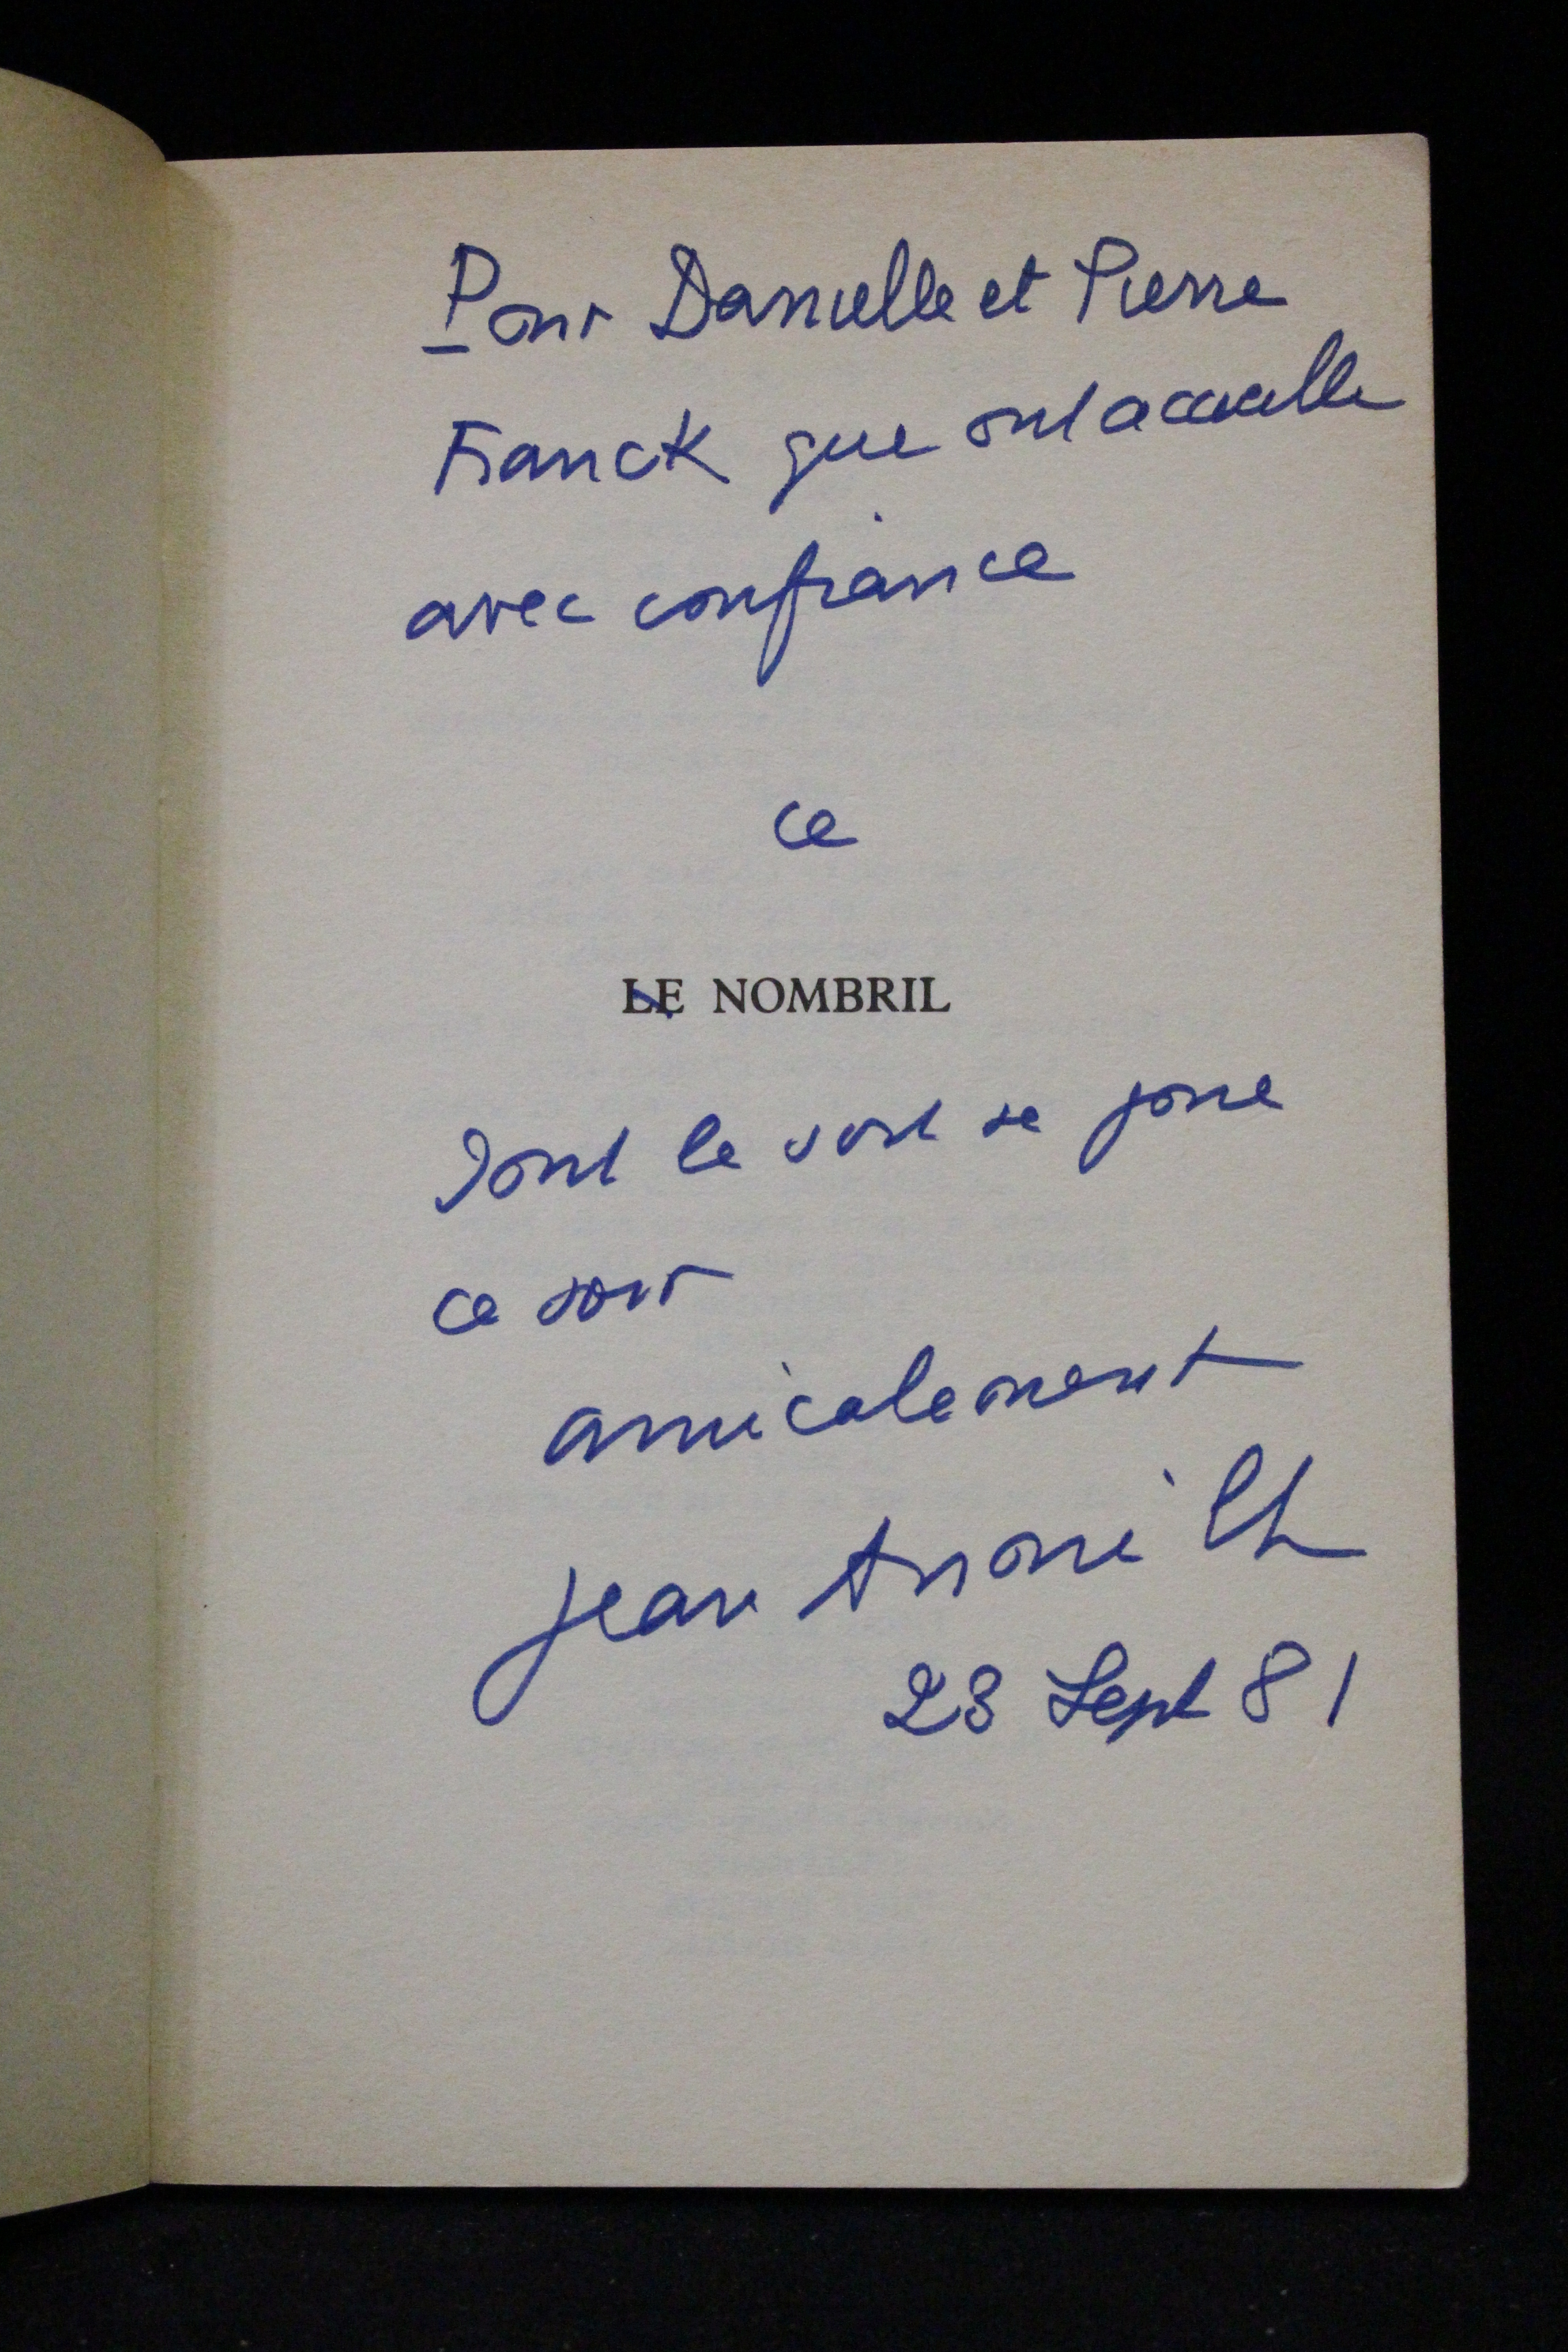 Pour Danielle et Pierre
Franck qui ont accueilli
avec confiance
ce
LE NOMBRIL
dont le sort se joue
ce soir
amicalement
Jean Anouilh
23 Sept 81